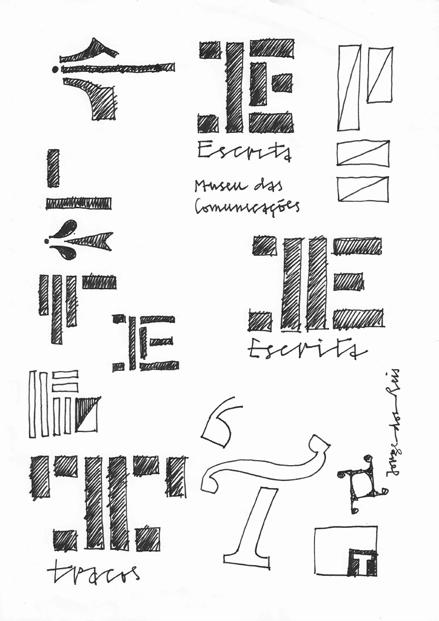 Escrita
Museu das
Comunicações
Escrita
Jorge dos Reis
traços
T